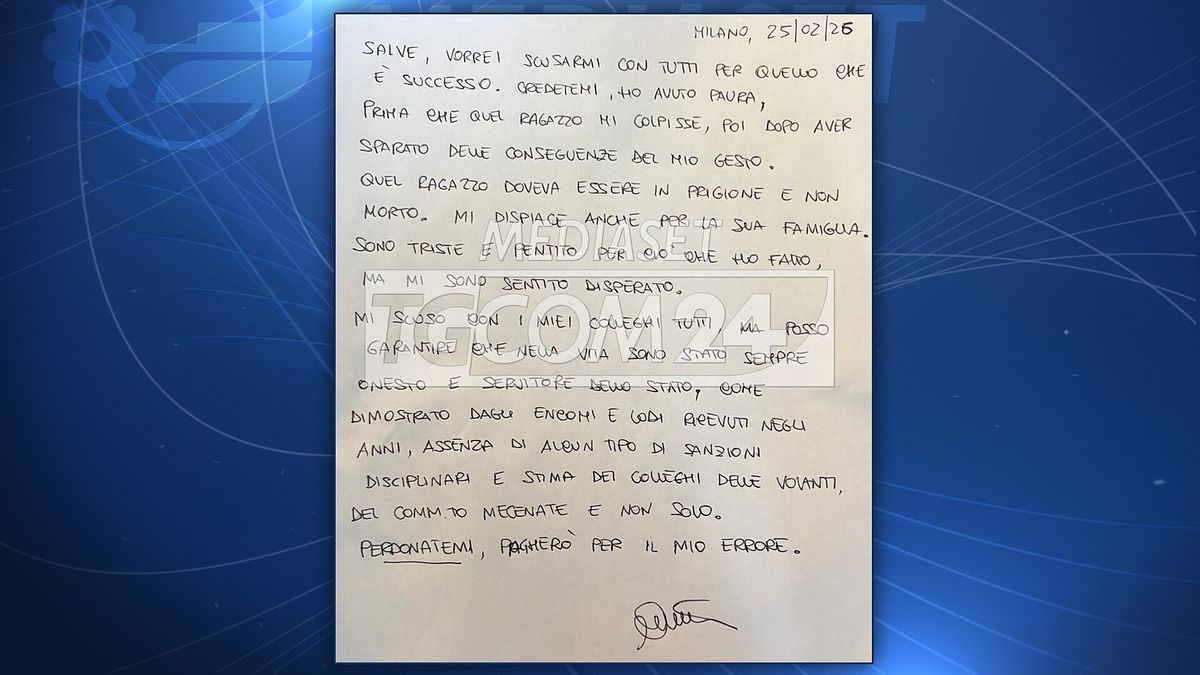 MEDIASET
MILANO, 25/02/26
SALVE, VORREI SCUSARMI CON TUTTI PER QUELLO CHE
È SUCCESSO. CREDETEMI, HO AVUTO PAURA,
PRIMA CHE QUEL RAGAZZO MI COLPISSE, POI DOPO AVER
SPARATO DELLE CONSEGUENZE DEL MIO GESTO.
QUEL RAGAZZO DOVEVA ESSERE IN PRIGIONE E NON
MORTO. MI DISPIACE ANCHE PER LA SUA FAMIGLIA.
MEDIASET
SONO TRISTE E PENTITO PER CIO' CHE HO FATTO,
MA MI SONO SENTITO DISPERATO.
TGCOM24
MI SCUSO CON I MIEI COLLEGHI TUTTI, MA POSSO
GARANTIRE CHE NELLA VITA SONO STATO SEMPRE
ONESTO E SERVITORE DELLO STATO, COME
DIMOSTRATO DAGLI ENCOMI E LODI RICEVUTI NEGLI
ANNI, ASSENZA DI ALCUN TIPO DI SANZIONI
DISCIPLINARI E STIMA DEI COLLEGHI DELLE VOLANTI,
DEL COMM.TO MECENATE E NON SOLO.
PERDONATEMI, PAGHERÒ PER IL MIO ERRORE.